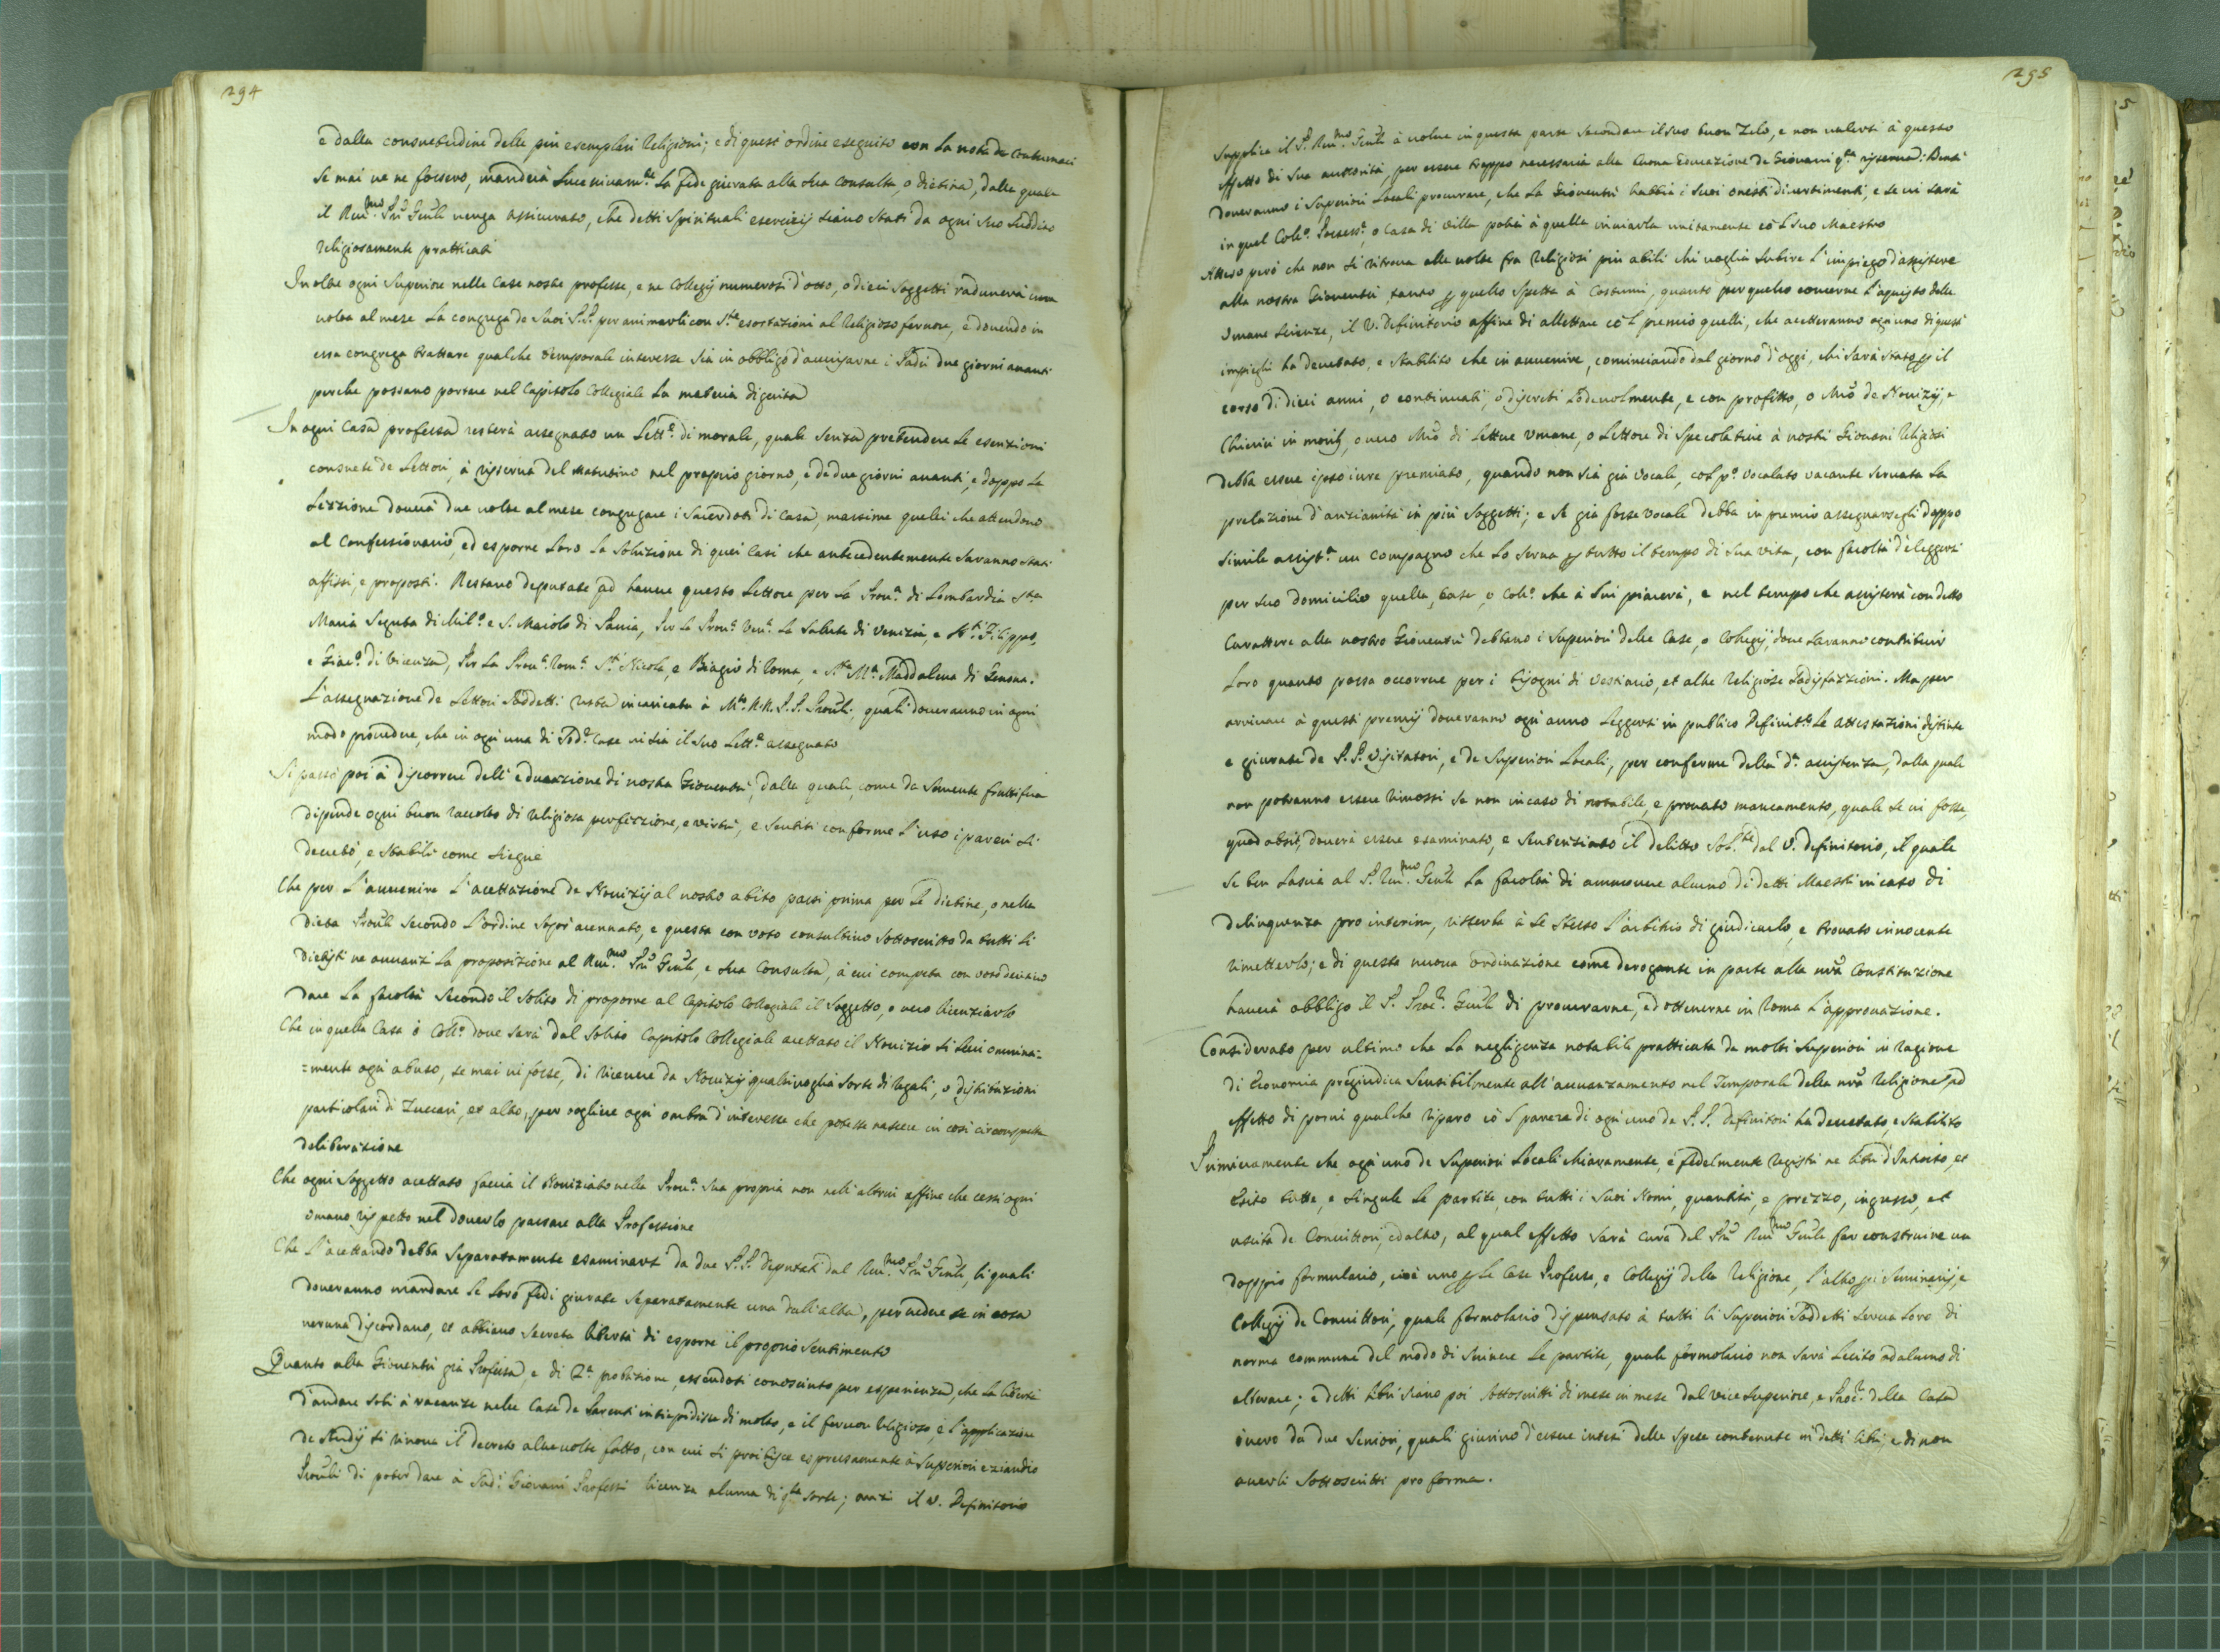 294
e dalla consuetudine delle più esemplari Religioni; e di quest'ordine eseguito con la nota de contumaci
se mai ve ne fossero, manderà successivam.te la fede giurata alla sua Consulta, o dietina, dalla quale
il Reu.mo Pre Genle venga assicurato, che detti Spirituali esercizij siano stati da ogni suo suddito
religiosamente pratticati
In oltre ogni Superiore nelle case nostre professe, e ne Collegij numerosi d'otto, o dieci soggetti radunerà una
volta al mese la congrega de suoi P.P. per animarli con S.te esortazioni al Religioso fervore, e dovendo in
essa congrega trattare qualche temporale interesse sia in obbligo d'avvisarne i Padri due giorni avanti
perche possano portare nel Capitolo Collegiale la materia digerita
In ogni Casa professa resterà assegnato un Lett.e di morale, quale senza pretendere le esenzioni
consuete de Lettori, à risserva del matutino nel proprio giorno, e de due giorni avanti, e doppo la
Lezzione dovrà due volte al mese congregare i Sacerdoti di Casa, massime quelli che attendono
al Confessionario, ed esporre loro la soluzione di quei Casi che antecedentemente saranno stati
affissi, e proposti. Restano deputate ad havere questo Lettore per la Prou.a di Lombardia Sta
Maria Segreta di Mil.o e S. Maiolo di Pavia, Per la Prou.a Ven.a la Salute di Venizia, e Sti Filippo,
e Giac.o di Vicenza, Per la Prou.a Rom.a Sti Nicola, e Biagio di Roma, e Sta M.a Maddalena di Genova.
L'assegnazione de Lettori Saddetti resta incaricata à M.to R.R. P.P. Prouli. quali doveranno in ogni
modo provedere, che in ogni una di Sud.e case vi sia il suo Lett.e assegnato
Si passò poi à discorrere dell'educazione di nostra Gioventù, dalla quale, come da semente fruttifera
dipende ogni buon raccolto di religiosa perfezzione, e virtù, e sentiti conforme l'uso i pareri si
decretò, e stabilì come siegue
Che per l'avvenire l'accettazione de Novizij al nostro abito passi prima per le dietine, o nella
dieta Proule secondo l'ordine sopra accennato, e questa con voto consultivo sottoscritto da tutti li
dietisti ne avanzi la proposizione al Reu.mo Pre Genle, e sua Consulta, à cui competa con voto decisivo
dare la facoltà secondo il solito di proporre al Capitolo Collegiale il Soggetto, o vero licenziarlo
Che in quella Casa ò Coll.o dove sarà dal solito Capitolo Collegiale accettato il Novizio si levi omnina=
=mente ogni abuso, se mai vi fosse, di ricevere da Novizij qualsivoglia sorte di regali, o distribuzioni
particolari di Zuccari, et altro, per togliere ogni ombra d'interesse che potesse nascere in così circonspetta
deliberazione
Che ogni soggetto accettato faccia il Noviziato nella Prou.a sua propria non nell'altrui affine che cessi ogni
umano rispetto nel doverlo passare alla Professione
Che l'acettando debba separatamente esaminarsi da due P.P. deputati dal Reu.mo Pre Genle, li quali
doveranno mandare le loro fedi giurate separatamente una dall'altra, per vedere se in cosa
veruna discordano, et abbiano secreta libertà di esporre il proprio sentimento
Quanto alla Gioventù già Professa, e di 2.a probazione, essendosi conosciuto per esperienza, che la libertà
d'andare soli à vacanze nelle Case de Parenti intiepidisse di molto, e il fervore religioso, e l'applicazione
de studij si rinova il decreto altre volte fatto, con cui si proibisce espressamente à Superiori eziandio
Prouli di poter dare à Sud.i Giovani Professi licenza alcuna di q.ta sorte; anzi il V. Definitorio
295
supplica il P. Reu.mo Genle à volere in questa parte secondare il suo buon Zelo, e non valersi à questo
effetto di sua auttorità, per essere troppo necessaria alla buona Educazione de Giovani q.ta risserva: Bensì
doveranno i Superiori Locali procurare, che la Gioventù habbia i suoi onesti divertimenti, e se vi sarà
in quel Coll.o Possess.e, o Casa di Villa potrà à quella inviarla unitamente cò l suo Maestro
Atteso però che non si ritrova alle volte fra Religiosi più abili chi voglia subire l'impiego d'assistere
alla nostra Gioventù, tanto per quello spetta à Costumi, quanto per quello concerne l'aquisto delle
Umane scienze, il V. Definitorio affine di allettare cò l premio quelli, che accetteranno ogni uno di questi
impieghi ha decretato, e stabilito che in avvenire, cominciando dal giorno d'oggi, chi sarà stato per il
corso di dieci anni, o continuati, o discreti lodevolmente, e con profitto, o Mro de Novizij, e
Chierici in moribus, o vero Mro di Lettere umane, o Lettore di Specolative à nostri Giovani Religiosi
debba essere ipso iure premiato, quando non sia già vocale, col p.o vocalato vacante servata la
prelazione d'anzianità in più soggetti; e se già fosse vocale debba in premio assegnarsegli doppo
simile assist.a un compagno che lo serva per tutto il tempo di sua vita, con facoltà d'eleggersi
per suo domicilio quella, casa, o Coll.o che à lui piacerà, e nel tempo che assisterà con detto
Carattere alla nostra Gioventù debbano i Superiori delle Case, o Collegij, dove saranno contribuir
loro quanto possa occorrere per i bisogni di vestiario, et altre religiose sodisfazzioni. Ma per
arrivare à questi premij doveranno ogni anno leggersi in publico Definit.o le attestazioni distinte
e giurate de P.P. Visitatori, e de Superiori Locali, per conferma della d.a assistenza, dalla quale
non potranno essere rimossi se non in caso di notabile, e provato mancamento, quale se vi fosse,
quod absit, doverà essere esaminato, e sentenziato il delitto sol.te dal V. Definitorio, il quale
se ben lascia al P. Reu.mo Genle la facoltà di ammovere alcuno di detti Maestri in caso di
delinquenza pro interim, risserba à se stesso l'arbitrio di giudicarlo, e trovato innocente
rimetterlo; e di questa nuova ordinazione come derogante in parte alla nra Constituzione
haverà obbligo il P. Proc.r Genle di procurarne, ed ottenerne in Roma l'approvazione.
Considerato per ultimo che la negligenza notabile pratticata da molti Superiori in ragione
di Economia pregiudica sensibilmente all'avvanzamento nel Temporale della nra Religione, ad
effetto di porvi qualche riparo cò l parere di ogni uno de P.P. Definitori ha decretato, e stabilito
Primieramente che ogni uno de Superiori Locali chiaramente, e fedelmente registri ne libri d'Introito, et
Esito tutte, e singule le partite, con tutti i suoi Nomi, quantità, e prezzo, ingresso, et
uscita de Convittori, ed altro, al qual effetto sarà cura del Pre Reu.mo Genle far construire un
doppio formulario, cioè uno per le Case Professe, e Collegij della Religione, l'altro per i Seminarij, e
Collegij de Convittori, quale formolario dispensato à tutti li Superiori Saddetti serva loro di
norma commune del modo di scrivere le partite, quale formolario non sarà lecito ad alcuno di
alterare; e detti libri siano poi sottoscritti di mese in mese dal vice Superiore, e Proc.r della Casa
ò vero da due Seniori, quali giurino d'essere intesi delle spese contenute in detti libri, e di non
averli sottoscritti pro forma.